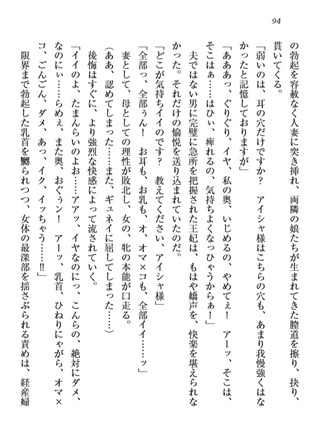 94
の勃起を容赦なく人妻に突き挿れ、両隣の娘たちが生まれてきた膣道を擦り、抉り、
貫いてくる。
「弱いのは、耳の穴だけですか？　アイシャ様はこちらの穴も、あまり我慢強くはな
かったと記憶しておりますが」
「あああっ、ぐりぐり、イヤ、私の奥、いじめるの、やめてぇ！　アーッ、そこは、
そこはぁ……はひぃ、痺れるの、気持ちよくなっひゃうからぁ！」
　夫ではない男に完璧に急所を把握された王妃は、もはや嬌声を、快楽を堪えられな
かった。それだけの愉悦を送り込まれていたのだ。
「どこが気持ちイイのです？　教えてください、アイシャ様」
「全部っ、全部ぅん！　お耳も、お乳も、オ、オマ×コも、全部イイ……ッ」
　妻として、母としての理性が敗北し、女の、牝の本能が口走る。
（ああ、認めてしまった……また、ギュネイに屈してしまった……）
　後悔はすぐに、より強烈な快感によって流されていく。
「イイのよ、たまんらいのよお……アアッ、イヤなのにっ、こんらの、絶対にダメ、
なのにぃ……らめぇ、また奥、おぐぅン！　アーッ、乳首、ひねりにゃがら、オマ×
コ、ごんごん、ダメ、あっ、イク、イッちゃう……‼」
　限界まで勃起した乳首を嬲られつつ、女体の最深部を揺さぶられる責めは、経産婦